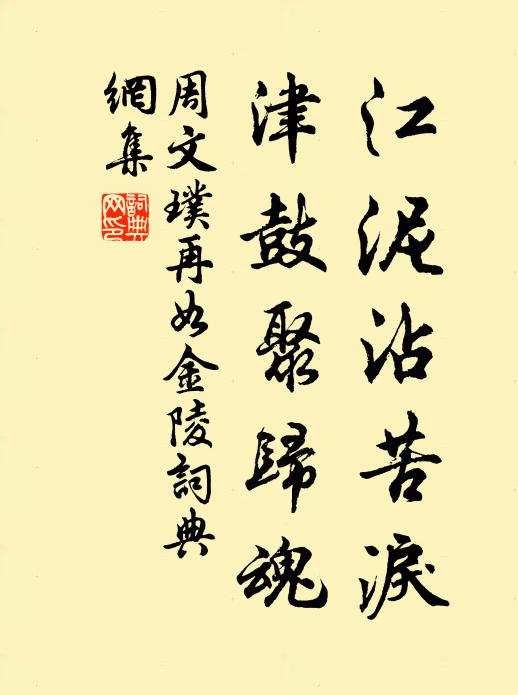 江泥沾苦淚
津鼓聚歸魂
周文璞再如金陵詞典
網集
詞典網印